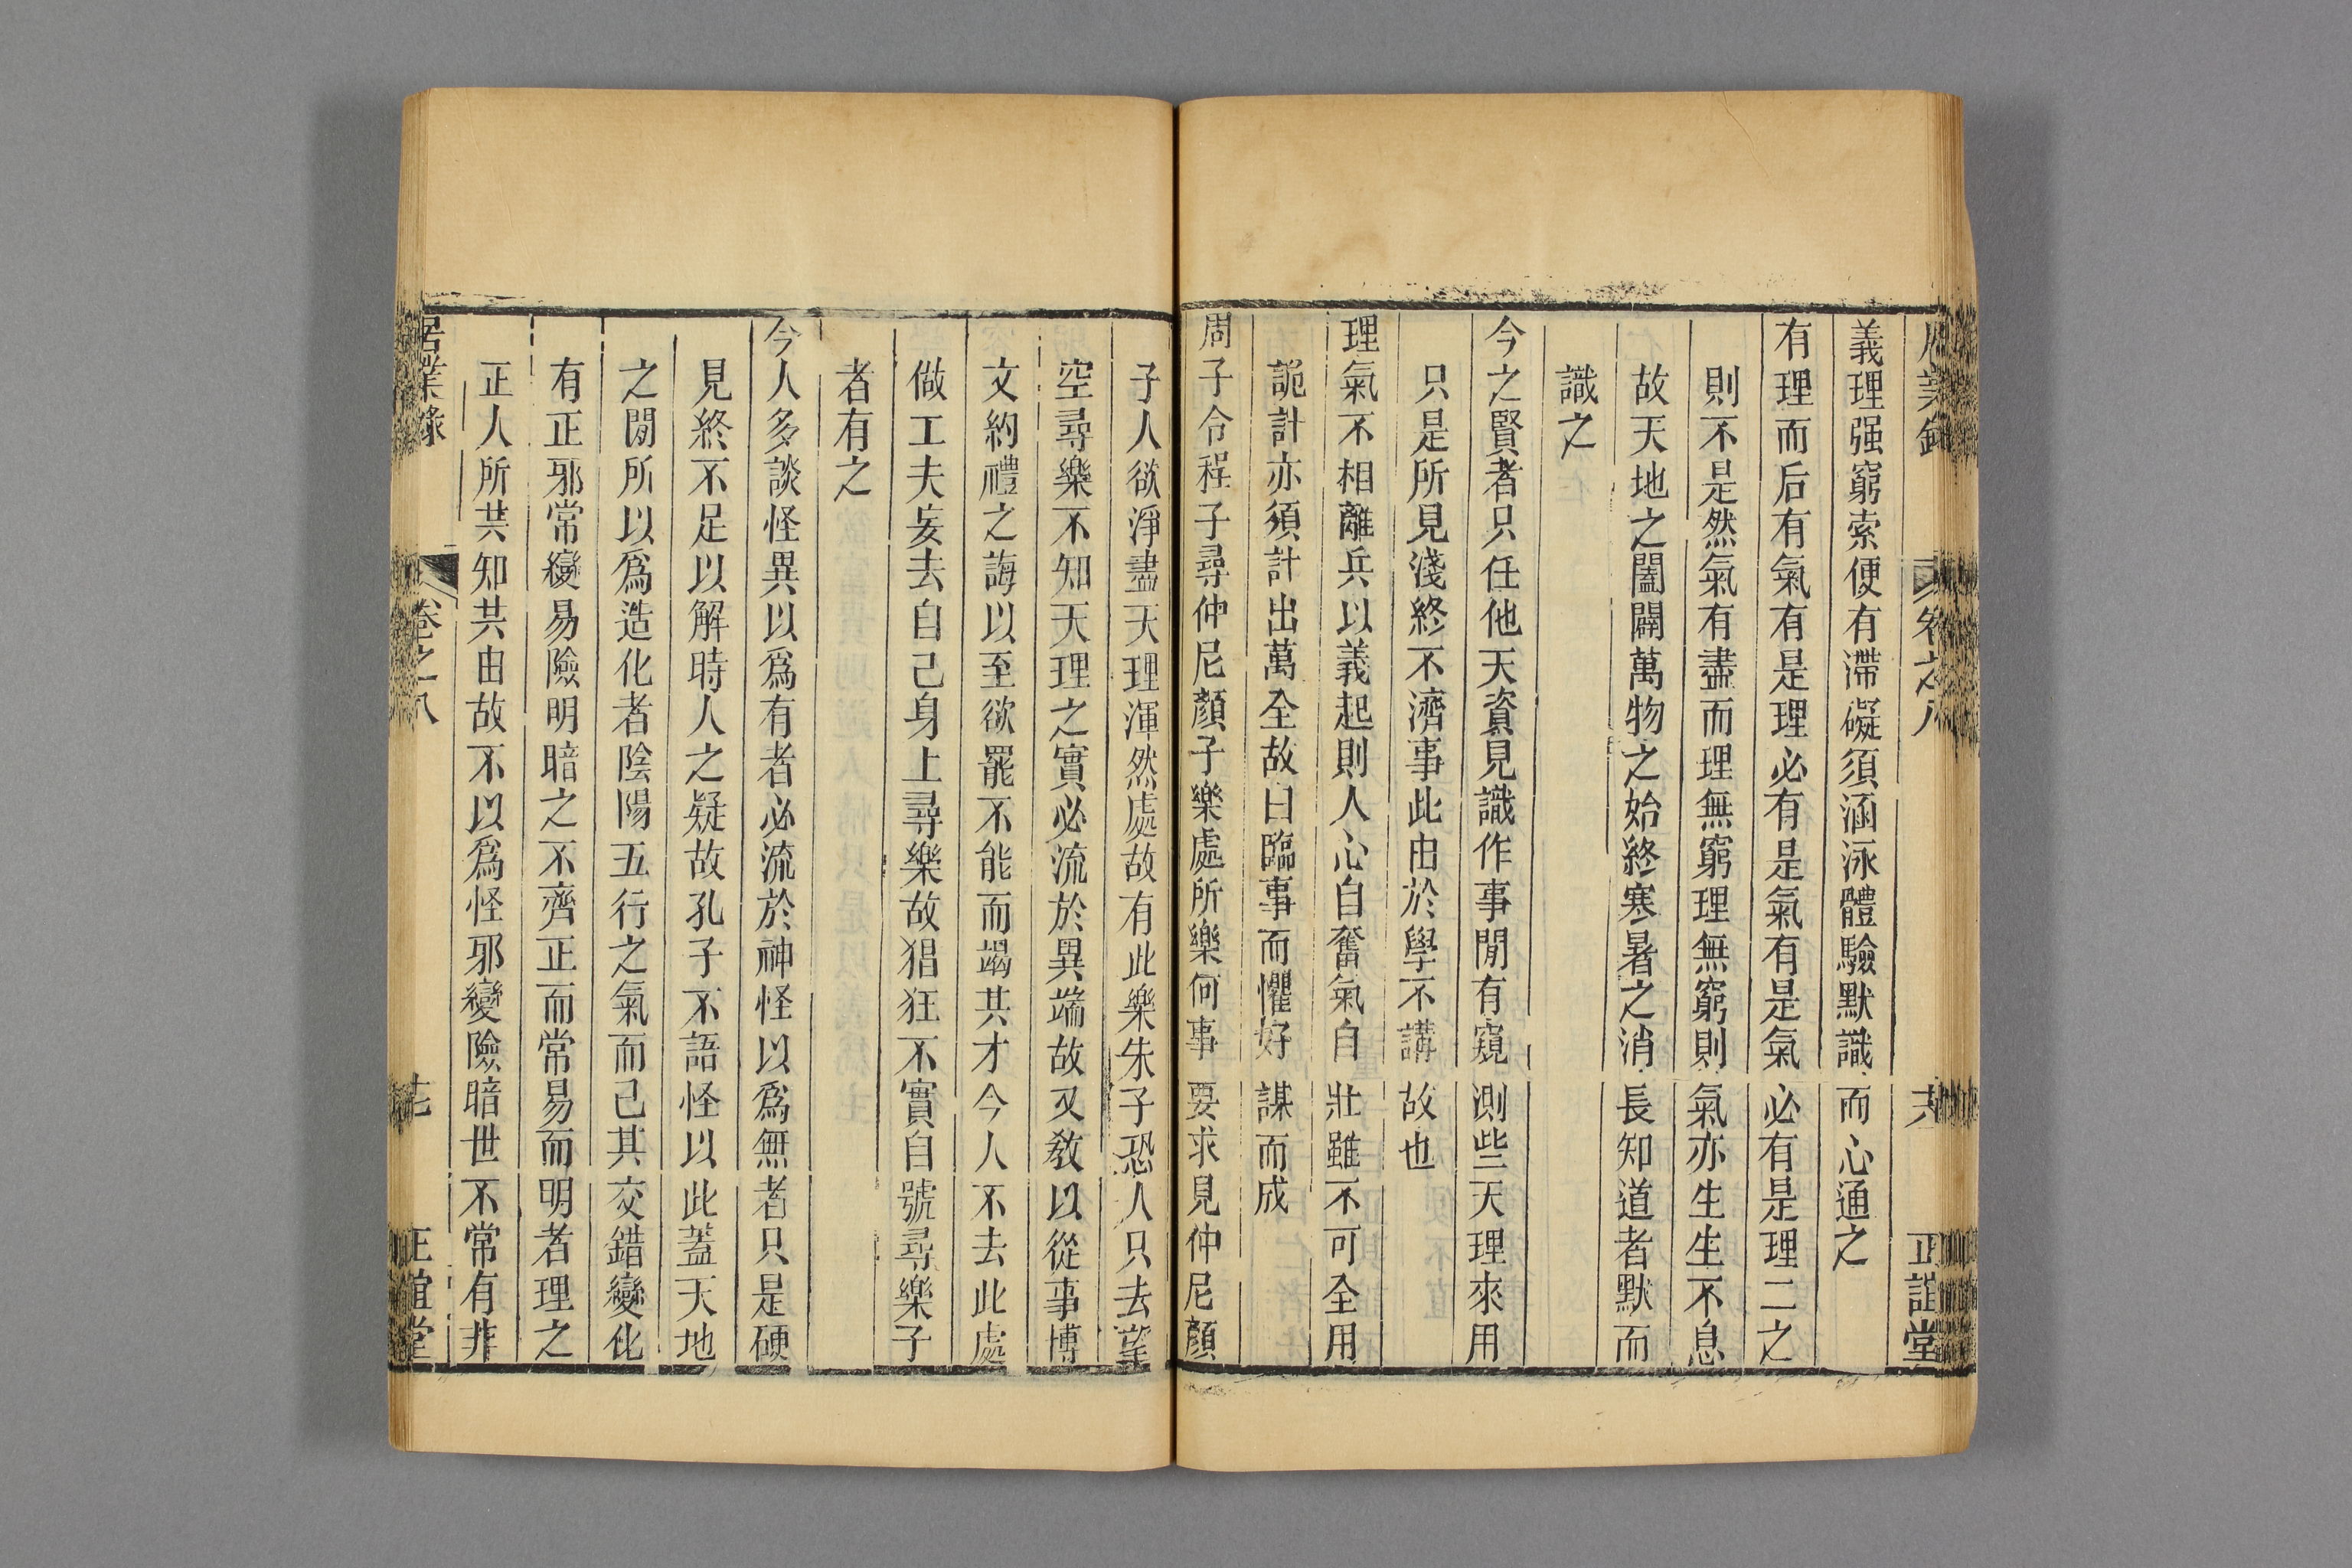 居業錄 卷之八 十六 正誼堂
義理强窮索便有滯礙須涵泳體驗默識而心通之
有理而后有氣有是理必有是氣有是氣必有是理二之
則不是然氣有盡而理無窮理無窮則氣亦生生不息
故天地之闔闢萬物之始終寒暑之消長知道者默而
識之
今之賢者只任他天資見識作事閒有窺測些天理來用
只是所見淺終不濟事此由於學不講故也
理氣不相離兵以義起則人心自奮氣自壯雖不可全用
詭計亦須計出萬全故曰臨事而懼好謀而成
周子令程子尋仲尼顏子樂處所樂何事要求見仲尼顏
子人欲淨盡天理渾然處故有此樂朱子恐人只去望
空尋樂不知天理之實必流於異端故又敎以從事博
文約禮之誨以至欲罷不能而竭其才今人不去此處
做工夫妄去自己身上尋樂故猖狂不實自號尋樂子
者有之
今人多談怪異以爲有者必流於神怪以爲無者只是硬
見終不足以解時人之疑故孔子不語怪以此蓋天地
之閒所以爲造化者陰陽五行之氣而已其交錯變化
有正邪常變易險明暗之不齊正而常易而明者理之
正人所共知共由故不以爲怪邪變險暗世不常有非
居業錄 卷之八 十七 正誼堂